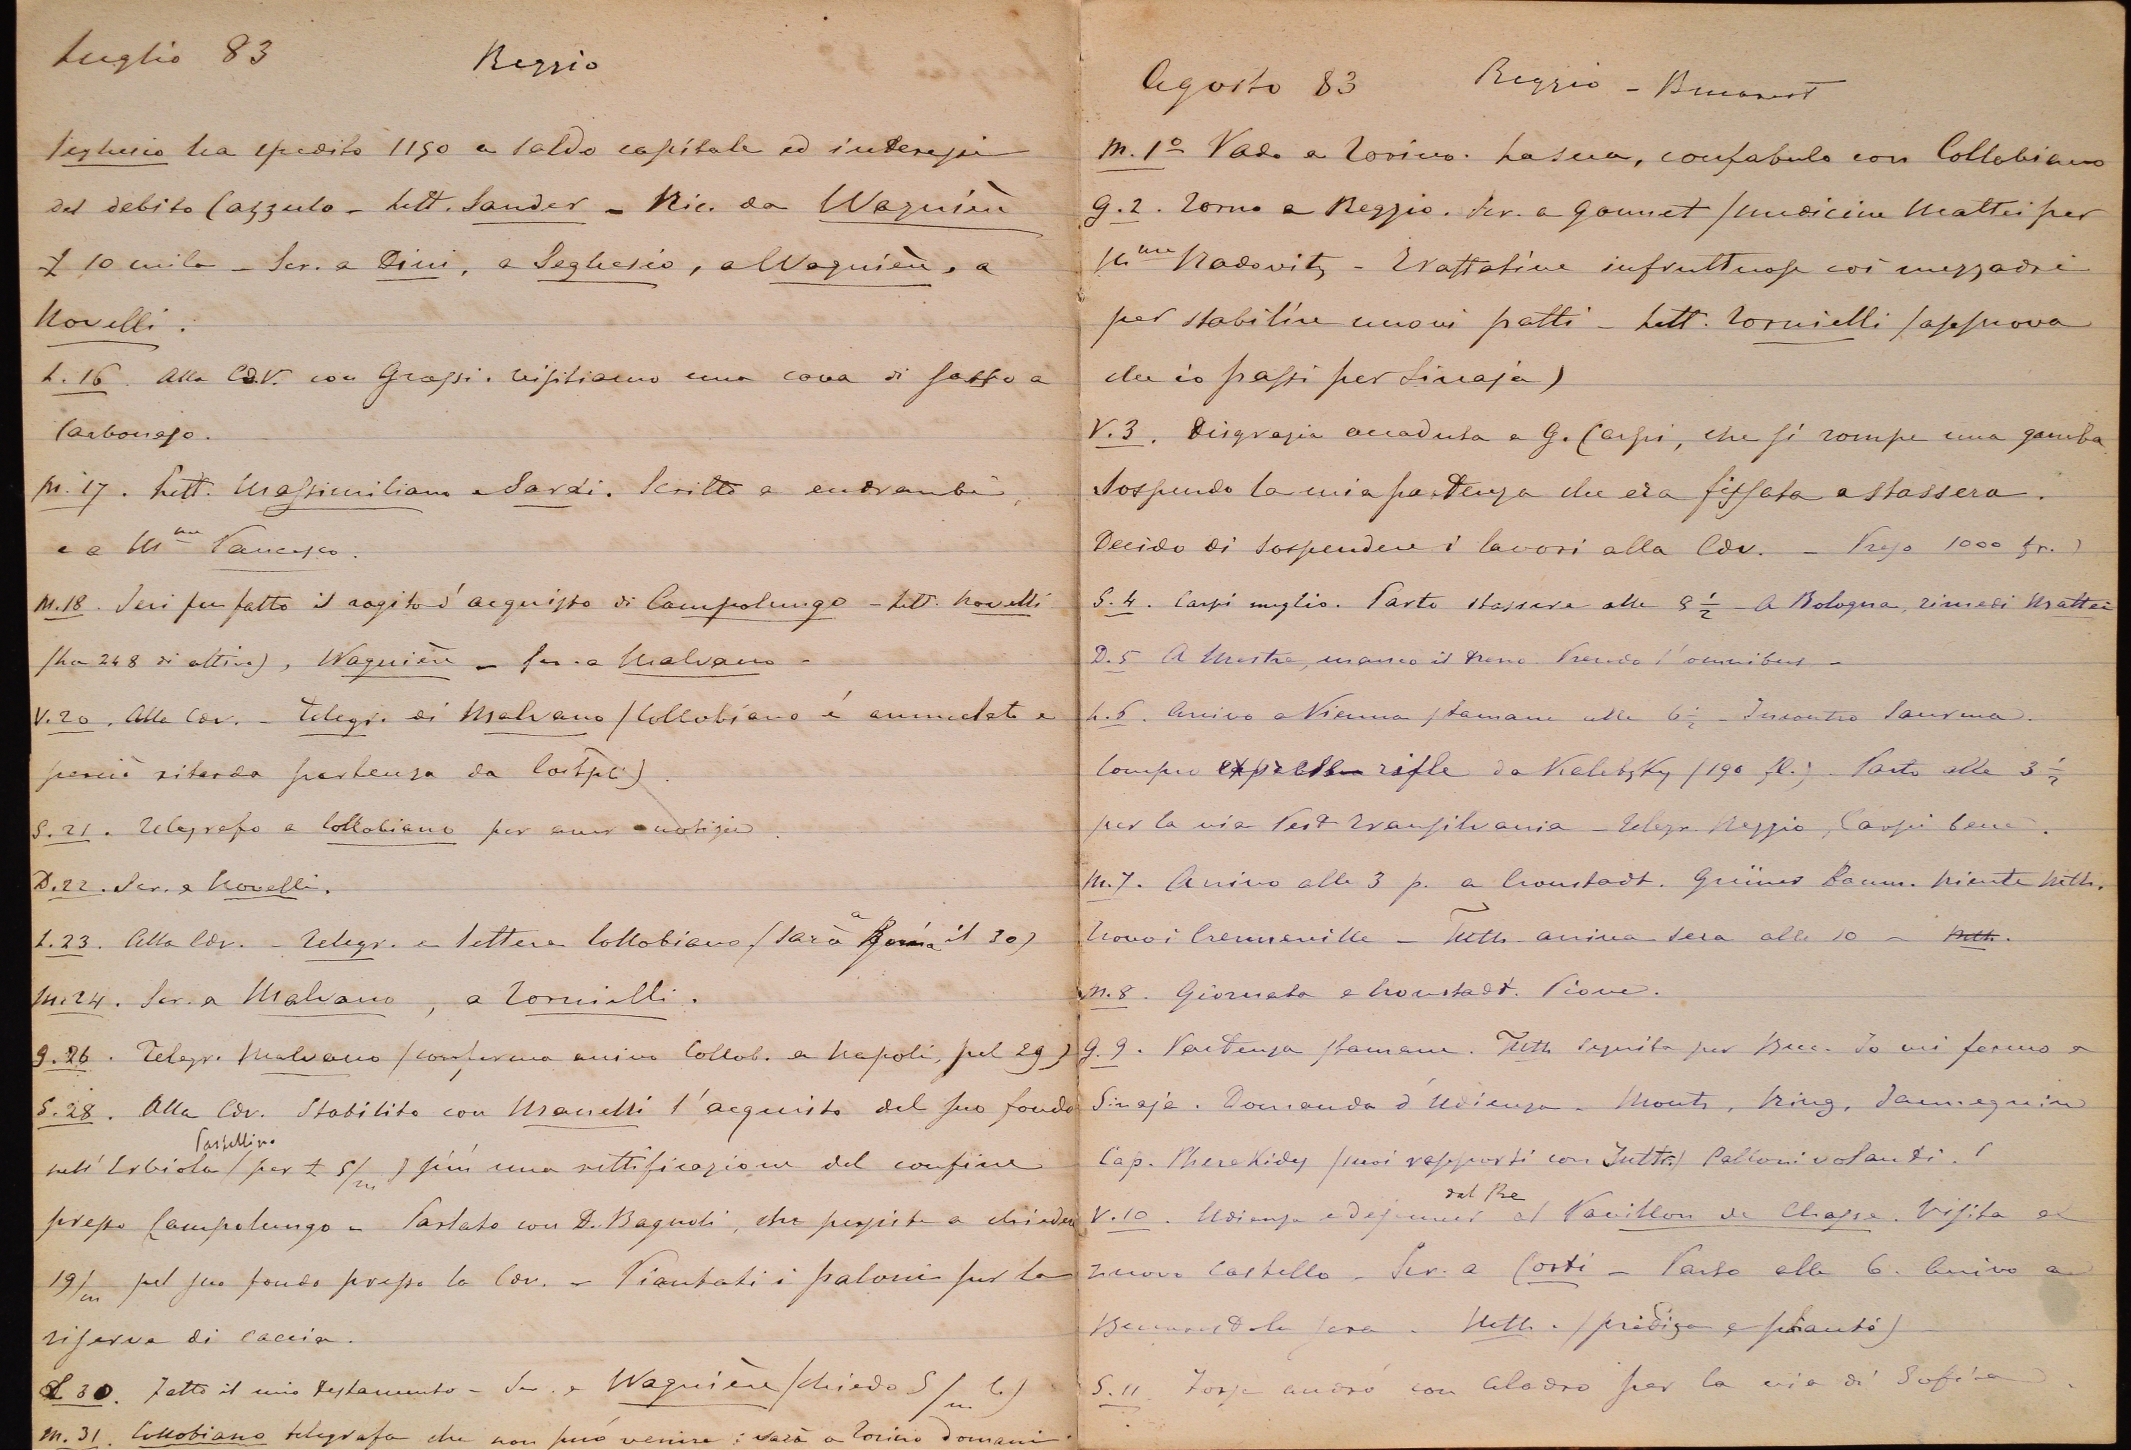 Luglio 83 Reggio
Seghesio ha spedito 1150 a saldo capitale ed interessi
del debito Cazzulo - Lett. Sander - Ric. da Wagnière
£ 10 mila - Scr. a Dini, a Seghesio, a Wagnière, a
Novelli.
L. 16. Alla CdV. con Grassi. visitiamo una cava di sasso a
Carbonaso.
M. 17. Lett. Massimiliano e Sardi. Scritto a entrambi,
e a Mme Vacaresco.
M. 18. Ieri fu fatto il rogito d'acquisto di Campolungo - Lett. Novelli
(ha 248 di attivo), Wagnière - Scr. a Malvano -
V. 20. Alla Cdv. - Telegr. di Malvano (Collobiano è ammalato e
perciò ritarda partenza da Costpli).
S. 21. Telegrafo a Collobiano per aver notizie.
D. 22. Scr. a Novelli.
L. 23. Alla Cdv. - Telegr. e lettera Collobiano (sarà a Roma il 30)
M. 24. Scr. a Malvano, a Tornielli.
G. 26. Telegr. Malvano (conferma arrivo Collob. a Napoli, pel 29)
S. 28. Alla Cdv. Stabilito con Manelli l'acquisto del suo fondo
nell' (per £ 5/m) più una rettificazione del confine
presso Campolungo - Parlato con D. Bagnoli, che persiste a chieder
19/m pel suo fondo presso la Cdv. - Piantati i paloni per la
riserva di caccia.
L 30. Fatto il mio testamento - Scr. a Wagnière (chiedo 5/m L)
M. 31. Collobiano telegrafa che non può venire: sarà a Torino domani.
Agosto 83 Reggio - Bucarest
M. 1º Vado a Torino. La sera, confabulo con Collobiano
G. 2. Torno a Reggio. Scr. a Gonnet (medicine Mattei per
Mme Radowitz - Trattative infruttuose coi mezzadri
per stabilire nuovi patti - Lett. Tornielli (approva
che io passi per Sinaja)
V. 3. Disgrazia accaduta a G. Carpi, che si rompe una gamba
Sospendo la mia partenza che era fissata a stassera.
Decido di sospendere i lavori alla Cdv. - Preso 1000 fr.)
S. 4. Carpi meglio. Parto stassera alle 8 ½ - A Bologna, rimedi Mattei
D. 5 A Mestre, manco il treno. Prendo l'omnibus -
L. 6. Arrivo a Vienna stamane alle 6 ½ - Incontro Saurma.
Compro express rifle da (190 fl.). Parto alle 3 ½
per la via Pest Transilvania - Telegr. Reggio, Carpi bene.
M. 7. Arrivo alle 3 p. a Cronstadt. Grüner Baum. Niente
Trovo i Cremieville - arriva sera alle 10 -
M. 8. Giornata a Cronstadt. Piove.
G. 9. Partenza stamane. seguita per Buc. Io mi fermo a
Sinaja. Domanda d'udienza - Monts, King, Jannequin
Cap. Pherekidy (suoi rapporti con Palloni volanti.!
V. 10. Udienza e dejeuner dal Re al Pavillon de Chasse. Visita al
nuovo Castello - Scr. a Corti - Parto alle 6. Arrivo a
Bucarest la sera -
S. 11 Forse andrò con Aladro per la via di Sofia.